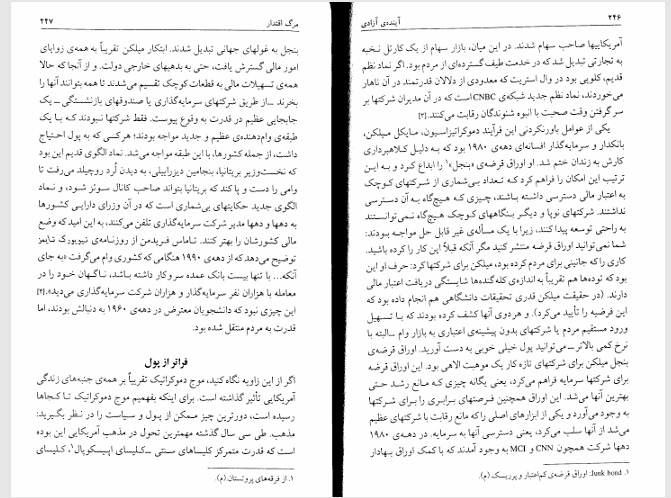 ۲۴۶ آینده‌ی آزادی
آمریکاییها صاحب سهام شدند. در این میان، بازار سهام از یک کارتل نخبه
به تجارتی تبدیل شد که در خدمت طیف گسترده‌ای از مردم بود. اگر نماد نظم
قدیم، کلوپی بود در وال استریت که معدودی از دلالان قدرتمند در آن ناهار
می‌خوردند، نماد نظم جدید شبکه‌ی CNBC است که در آن مدیران شرکتها بر
سر گرفتن وقت صحبت با انبوه شنوندگان رقابت می‌کنند.[۳]
یکی از عوامل باورنکردنی این فرآیند دموکراتیزاسیون، مایکل میلکن،
بانکدار و سرمایه‌گذار افسانه‌ای دهه‌ی ۱۹۸۰ بود که به دلیل کلاهبرداری
کارش به زندان ختم شد. او اوراق قرضه‌ی «بنجل»۱ را ابداع کرد و به این
ترتیب این امکان را فراهم کرد که تعداد بی‌شماری از شرکتهای کوچک
به اعتبار مالی دسترسی داشته باشند، چیزی که هیچ‌گاه به آن دسترسی
نداشتند. شرکتهای نوپا و دیگر بنگاههای کوچک هیچ‌گاه نمی‌توانستند
به راحتی توسعه پیدا کنند، زیرا با یک مسأله‌ی غیر قابل حل مواجه بودند:
شما نمی‌توانید اوراق قرضه منتشر کنید مگر آنکه قبلاً این کار را کرده باشید.
کاری را که جانینی برای مردم کرده بود، میلکن برای شرکتها کرد: حرف او این
بود که توده‌ها هم تقریباً به اندازه‌ی کله‌گنده‌ها شایستگی دریافت اعتبار مالی
دارند. (در حقیقت میلکن قدری تحقیقات دانشگاهی هم انجام داده بود که
این فرضیه را تأیید می‌کرد). و هردوی آنها کشف کرده بودند که با تسهیل
ورود مستقیم مردم یا شرکتهای بدون پیشینه‌ی اعتباری به بازار وام ــ البته با
نرخ کمی بالاتر ــ می‌توانید پول خیلی خوبی به دست آورید. اوراق قرضه‌ی
بنجل میلکن برای شرکتهای تازه کار یک موهبت الاهی بود. این اوراق قرضه
برای شرکتها سرمایه فراهم می‌کرد، یعنی یگانه چیزی که مانع رشد حتی
بهترین آنها می‌شد. این اوراق همچنین فرصتهای برابری را برای شرکتها
به وجود می‌آورد و یکی از ابزارهای اصلی را که مانع رقابت با شرکتهای عظیم
می‌شد از آنها سلب می‌کرد، یعنی دسترسی آنها به سرمایه. در دهه‌ی ۱۹۸۰
دهها شرکت همچون CNN و MCI به وجود آمدند که با کمک اوراق بهادار
۱. Junk bond: اوراق قرضه‌ی کم‌اعتبار و پرریسک. (م).
مرگ اقتدار ۲۴۷
بنجل به غولهای جهانی تبدیل شدند. ابتکار میلکن تقریباً به همه‌ی زوایای
امور مالی گسترش یافت، حتی به بدهیهای خارجی دولت. و از آنجا که حالا
همه‌ی تسهیلات مالی به قطعات کوچک تقسیم می‌شدند تا همه بتوانند آنها را
بخرند ــ از طریق شرکتهای سرمایه‌گذاری یا صندوقهای بازنشستگی ــ یک
جابجایی عظیم در قدرت به وقوع پیوست. فقط شرکتها نبودند که با یک
طبقه‌ی وام‌دهنده‌ی عظیم و جدید مواجه بودند؛ هرکسی که به پول احتیاج
داشت، از جمله کشورها، با این طبقه مواجه می‌شد. نماد الگوی قدیم این بود
که نخست‌وزیر بریتانیا، بنجامین دیزراییلی، به دیدن لُرد روچیلد می‌رفت تا
وامی را دست و پا کند که بریتانیا بتواند صاحب کانال سوئز شود، و نماد
الگوی جدید حکایتهای بی‌شماری است که در آن وزرای دارایی کشورها
به دهها و دهها مدیر شرکت سرمایه‌گذاری تلفن می‌کنند، به این امید که وضع
مالی کشورشان را بهتر کنند. تاماس فریدمن از روزنامه‌ی نیویورک تایمز
توضیح می‌دهد که از دهه‌ی ۱۹۹۰ هنگامی که کشوری وام می‌گرفت «به جای
آنکه... با تنها بیست بانک عمده سر و کار داشته باشد، ناگهان خود را در
معامله با هزاران نفر سرمایه‌گذار و هزاران شرکت سرمایه‌گذاری می‌دید».[۴]
این چیزی نبود که دانشجویان معترض در دهه‌ی ۱۹۶۰ به دنبالش بودند، اما
قدرت به مردم منتقل شده بود.
فراتر از پول
اگر از این زاویه نگاه کنید، موج دموکراتیک تقریباً بر همه‌ی جنبه‌های زندگی
آمریکایی تأثیر گذاشته است. برای اینکه بفهمیم موج دموکراتیک تا کجاها
رسیده است، دورترین چیز ممکن از پول و سیاست را در نظر بگیرید:
مذهب. طی سی سال گذشته مهمترین تحول در مذهب آمریکایی این بوده
است که قدرت متمرکز کلیساهای سنتی ــ کلیسای اپیسکوپال۱، کلیسای
۱. از فرقه‌های پروتستان. (م).